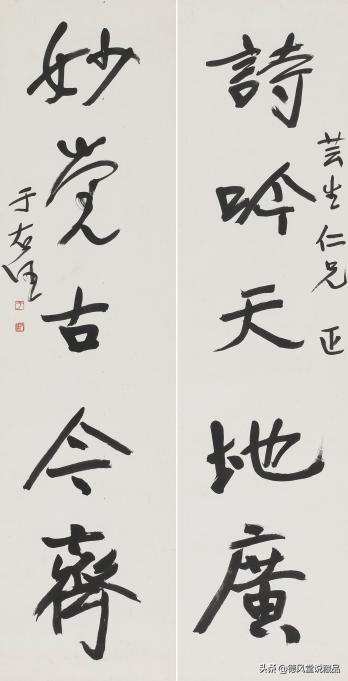 芸生仁兄 正
詩吟天地廣
妙覺古今齊
于右任
头条 @德风堂说藏品